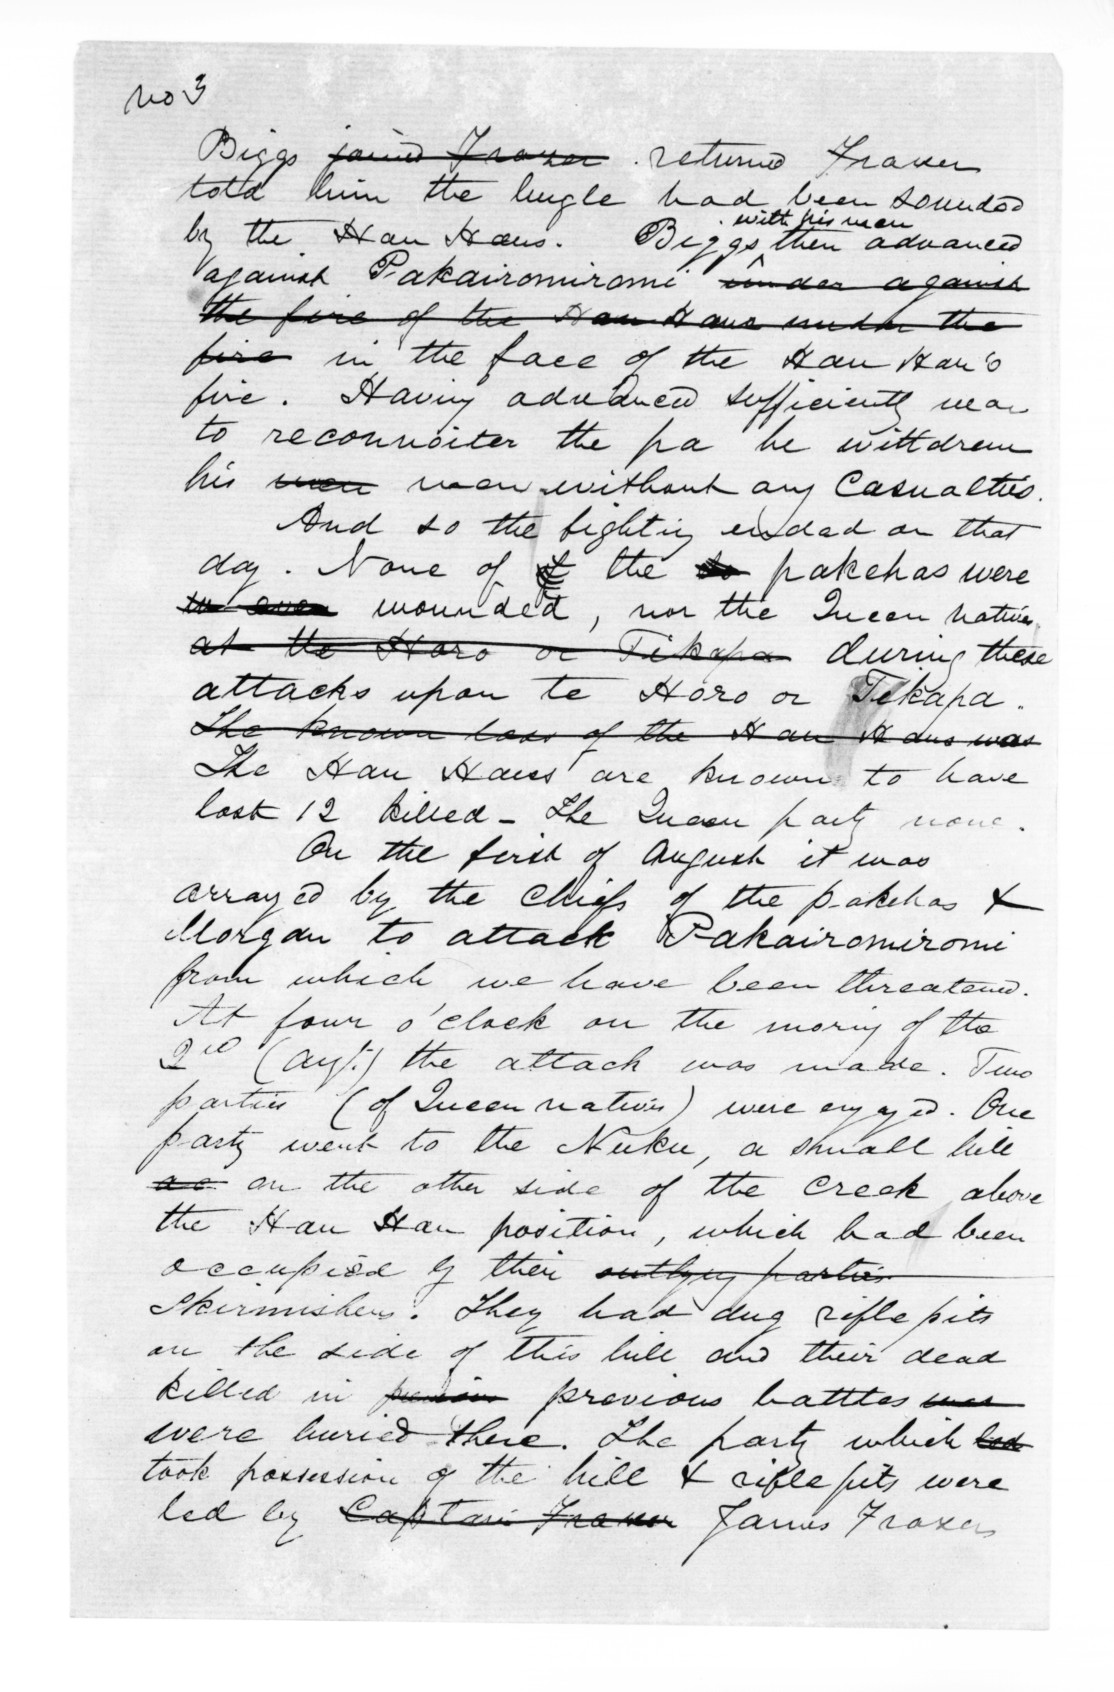 No 3
Biggs joined Fraser . returned Fraser
told him the bugle had been sounded
with his men
by the Hau Haus. Biggs then advanced
against Pakairomiromi under against
the fire of the Hau Haus under the
fire in the face of the Hau Hau's
fire. Having advanced sufficiently near
to reconnoiter the pa he withdrew
his men men without any casualties.
And so the fighting ended on that
day. None of the pakehas were
even wounded, nor the Queen natives
at the Horo or Tikapa during these
attacks upon te Horo or Tikapa.
The known loss of the Hau Haus was
The Hau Haus are known to have
lost 12 killed - The Queen party none.
On the first of August it was
arranged by the chiefs of the pakehas &
Morgan to attack Pakairomiromi
from which we have been threatened.
At four o'clock on the morning of the
2nd (Augt.) the attack was made. Two
parties (of Queen natives) were engaged. One
party went to the Nuku, a small hill
on the other side of the creek above
the Hau Hau position, which had been
occupied by their outlying parties
skirmishers. They had dug rifle pits
on the side of this hill and their dead
killed in previous battles was
were buried there. The party which led
took possession of the hill & rifle pits were
led by Captain Fraser James Fraser